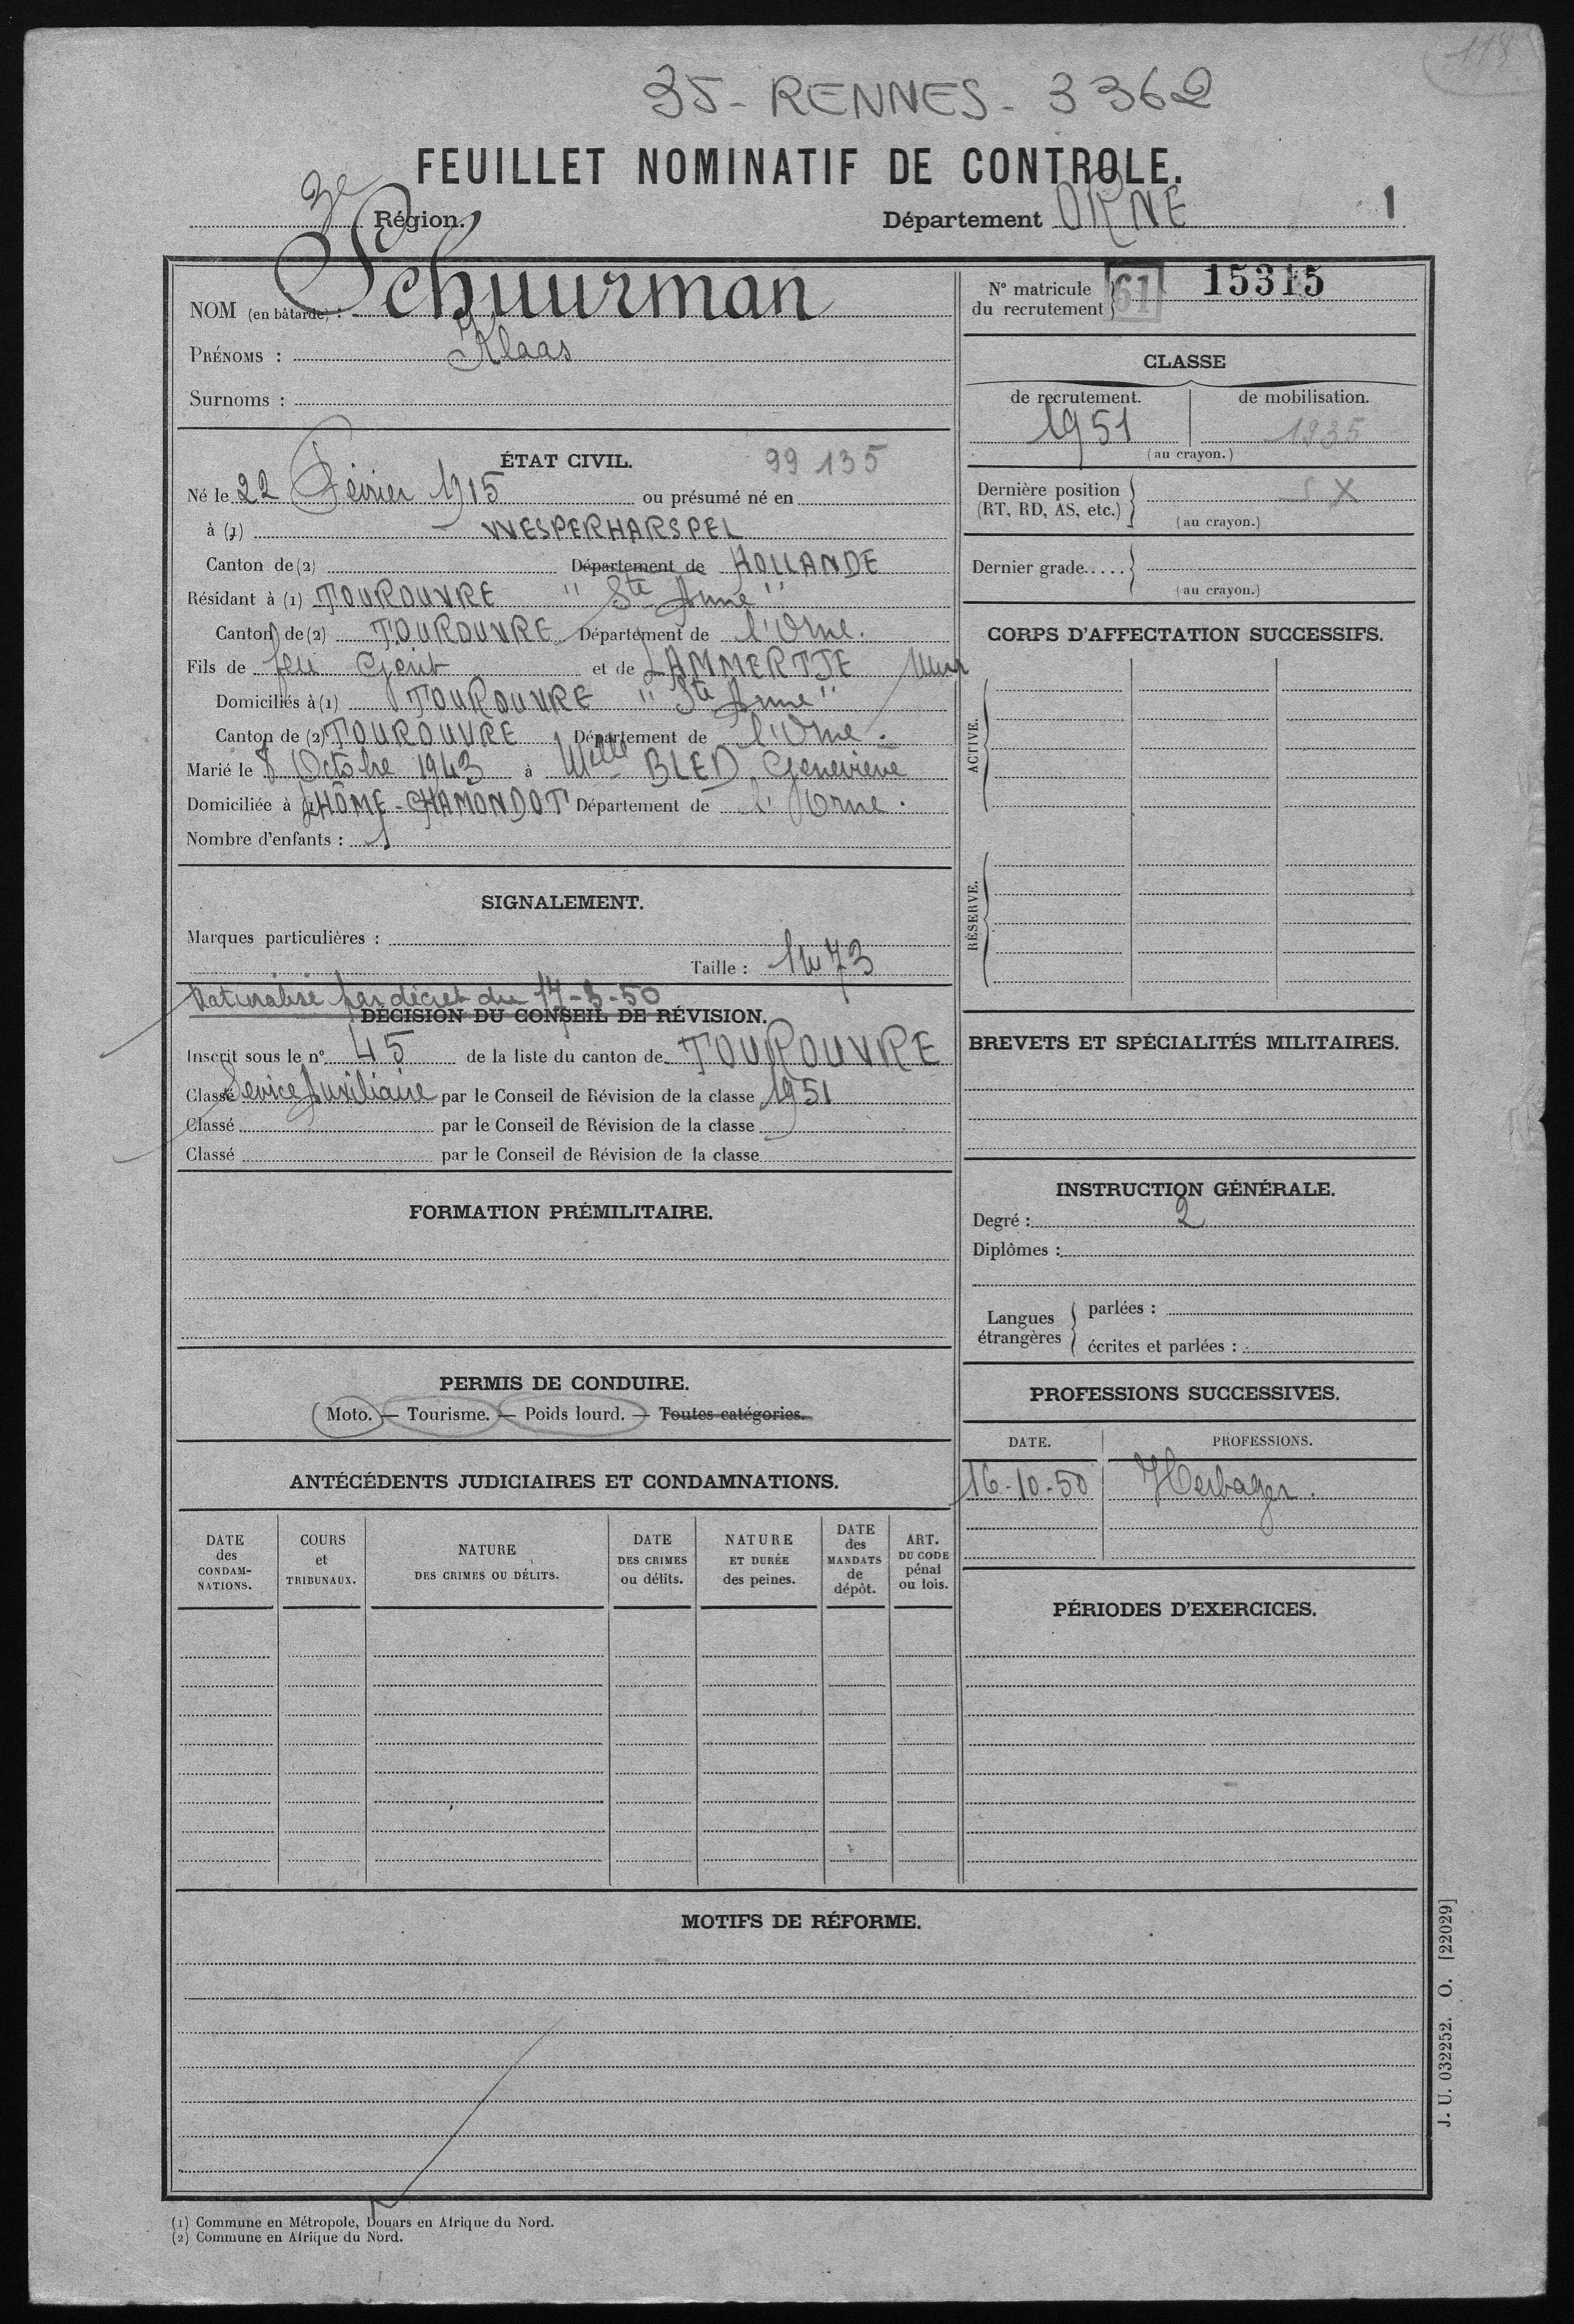 118
35 - RENNES - 3362
FEUILLET NOMINATIF DE CONTROLE.
3e Région. Département ORNE 1
NOM (en bâtarde) : Schuurman
PRÉNOMS : Klaas
Surnoms :
N° matricule du recrutement 61 15315
CLASSE
de recrutement. de mobilisation.
1951 1935
(au crayon.)
Dernière position (RT, RD, AS, etc.) X
(au crayon.)
Dernier grade.....
(au crayon.)
ÉTAT CIVIL. 99 135
Né le 22 Février 1915 ou présumé né en
à (1) WESPERHARSPEL
Canton de (2) Département de HOLLANDE
Résidant à (1) TOUROUVRE " Ste Anne "
Canton de (2) TOUROUVRE Département de l'Orne.
Fils de feu Gerit et de LAMMERTJE
Domiciliés à (1) TOUROUVRE " Ste Anne "
Canton de (2) TOUROUVRE Département de l'Orne.
Marié le 8 Octobre 1943 à Melle BLED Geneviève
Domiciliée à LHÔME-CHAMONDOT Département de l'Orne.
Nombre d'enfants : 1
SIGNALEMENT.
Marques particulières :
Taille : 1m73
Naturalisé par décret du 17-3-50
DÉCISION DU CONSEIL DE RÉVISION.
Inscrit sous le n° 45 de la liste du canton de TOUROUVRE
Classé Service Auxiliaire par le Conseil de Révision de la classe 1951
Classé par le Conseil de Révision de la classe
Classé par le Conseil de Révision de la classe
FORMATION PRÉMILITAIRE.
PERMIS DE CONDUIRE.
Moto. — Tourisme. — Poids lourd. — Toutes catégories.
ANTÉCÉDENTS JUDICIAIRES ET CONDAMNATIONS.
DATE des CONDAM-NATIONS.
COURS et TRIBUNAUX.
NATURE DES CRIMES OU DÉLITS.
DATE DES CRIMES ou délits.
NATURE ET DURÉE des peines.
DATE des MANDATS de dépôt.
ART. DU CODE pénal ou lois.
CORPS D'AFFECTATION SUCCESSIFS.
ACTIVE.
RÉSERVE.
BREVETS ET SPÉCIALITÉS MILITAIRES.
INSTRUCTION GÉNÉRALE.
Degré : 2
Diplômes :
Langues étrangères
parlées :
écrites et parlées :
PROFESSIONS SUCCESSIVES.
DATE. PROFESSIONS.
16-10-50 Herbager.
PÉRIODES D'EXERCICES.
MOTIFS DE RÉFORME.
(1) Commune en Métropole, Douars en Afrique du Nord.
(2) Commune en Afrique du Nord.
J. U. 032252. O. [22029]